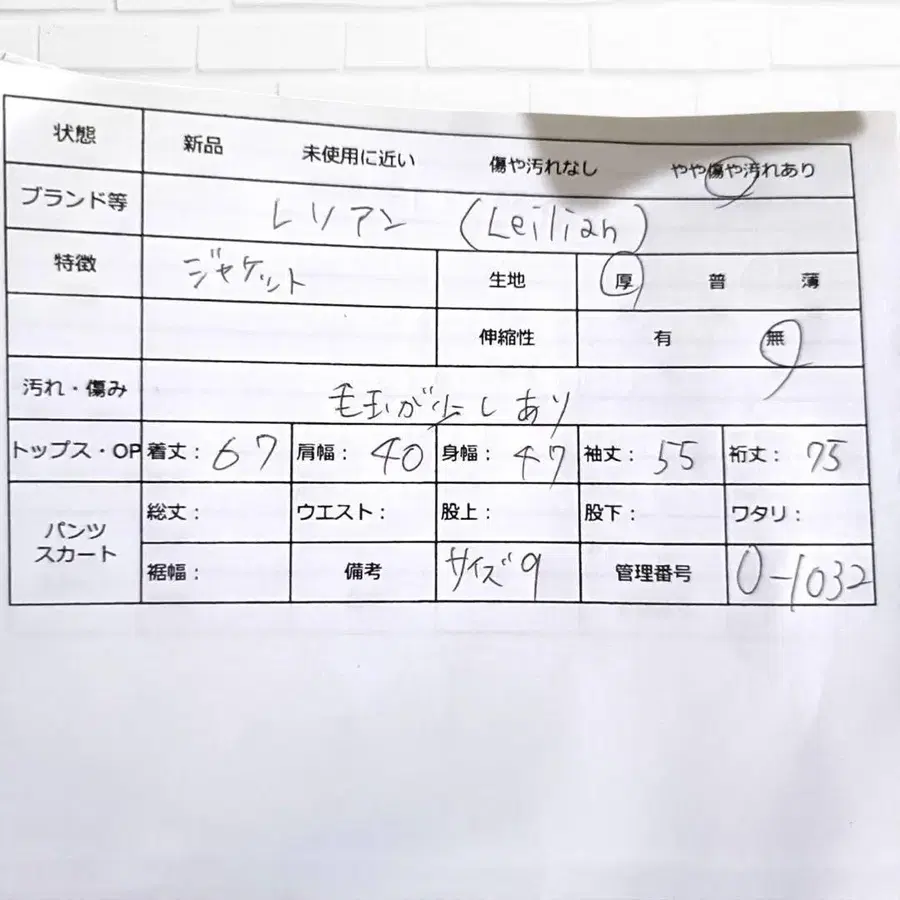 状態 新品 未使用に近い 傷や汚れなし やや傷や汚れあり
ブランド等 レリアン (Leilian)
特徴 ジャケット 生地 厚 普 薄
伸縮性 有 無
汚れ・傷み 毛玉が少しあり
トップス・OP 着丈: 67 肩幅: 40 身幅: 47 袖丈: 55 裄丈: 75
パンツ
スカート
総丈: ウエスト: 股上: 股下: ワタリ:
裾幅: 備考 サイズ9 管理番号 0-1032